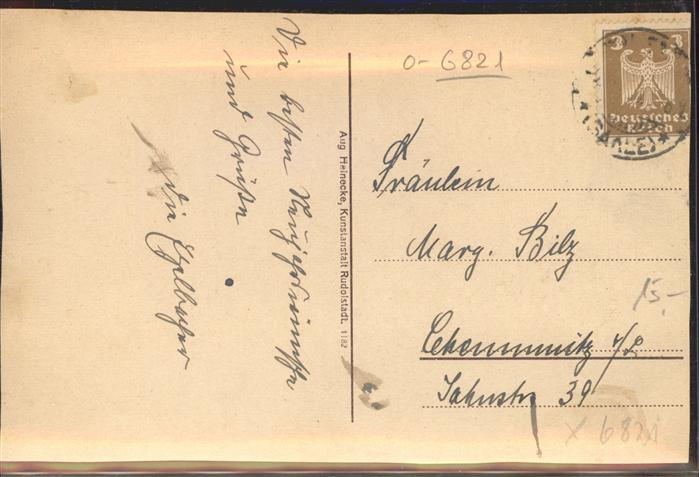 Die besten Neujahrswünsche
und Grüße
die Etzelbacher
Aug. Heinecke, Kunstanstalt Rudolstadt. 1182
0-6821
3 3
Deutsches
Reich
(SAALE)
Fräulein
Marg. Bilz
Chemmnitz i/S
Jahnstr 39
15,-
x 6821